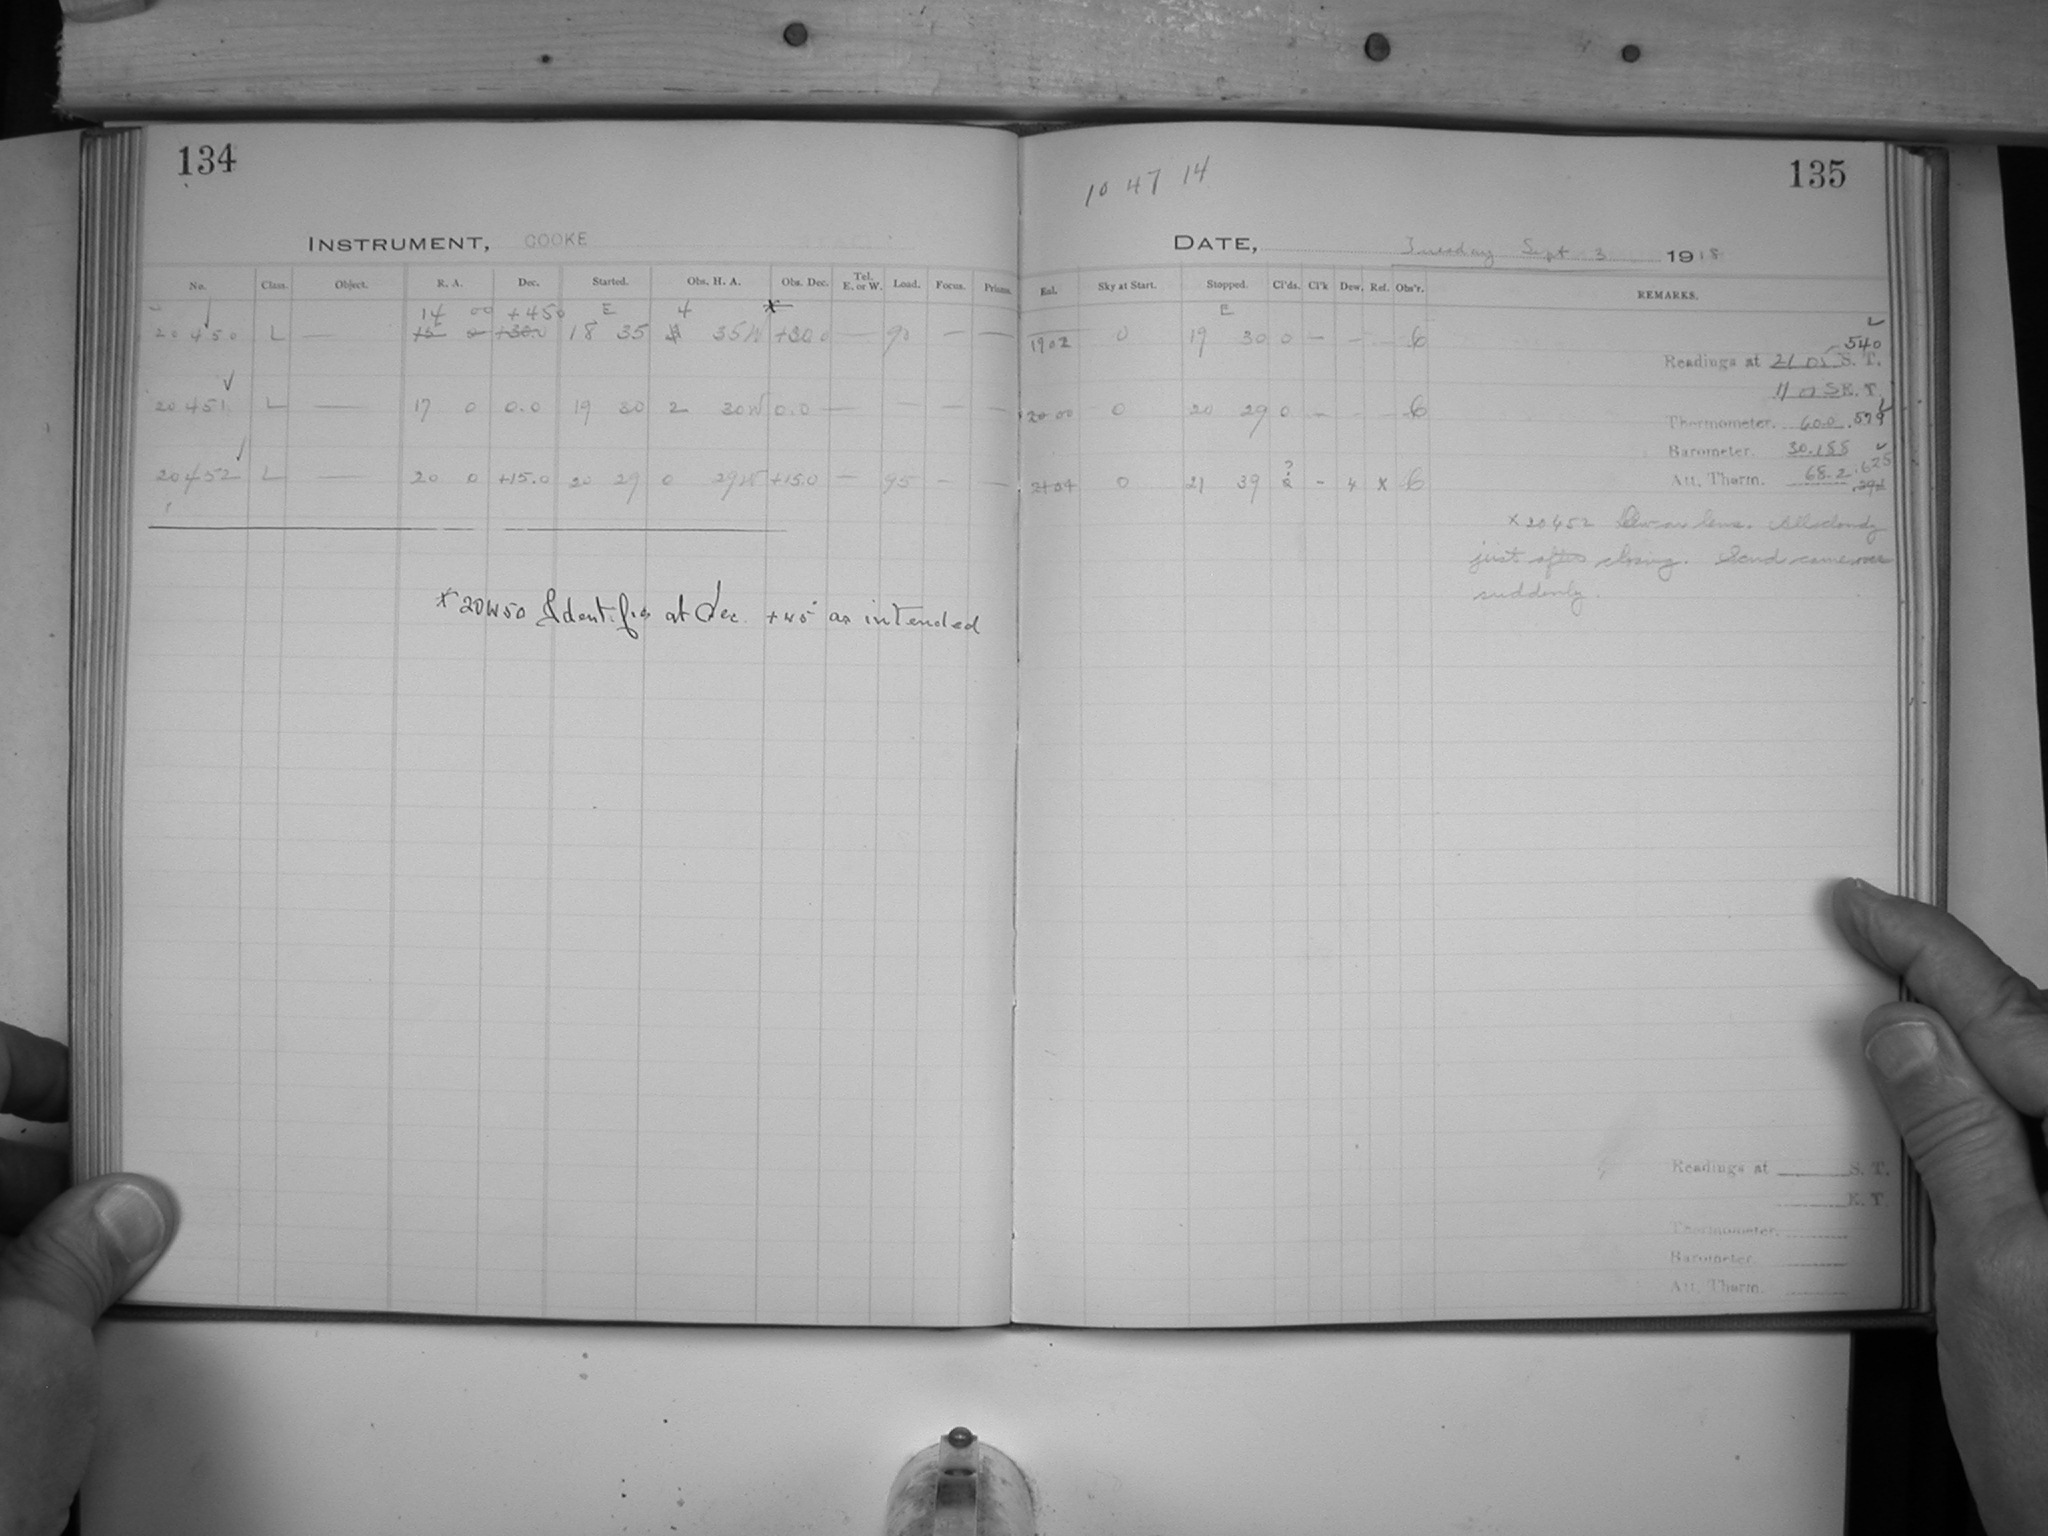 134
INSTRUMENT, COOKE
No. Class. Object. R. A. Dec. Started. Obs. H. A. Obs. Dec. Tel. E. or W. Load. Focus. Prisms.
14 00 +45 0 E 4 *
20450 L — 15 0 +30.0 18 35 35W +30 0 — 90 — —
20451 L — 17 0 0.0 19 30 2 30W 0.0 — — — —
20452 L — 20 0 +15.0 20 29 0 29W +15.0 — 95 – —
* 20450 Identifies at Dec. +45° as intended
135
10 47 14
DATE, Tuesday Sept 3 1918
Exl. Sky at Start. Stopped. Cl'ds. Cl'k Dew. Ref. Obs'r. REMARKS.
E
1902 0 19 30 0 – – 6
540
Readings at 21 05 S. T.
11 0 E. T.
20 00 0 20 29 0 – – 6
Thermometer. 60.0 .579
Barometer. 30.188
?
21 04 0 21 39 2 – 4 x 6
Att. Therm. 68.2 .625
.292
x 20452 Dew on lens. All cloudy
just after closing. Scud came over
suddenly.
Readings at S. T.
E. T
Thermometer.
Barometer.
Att. Therm.